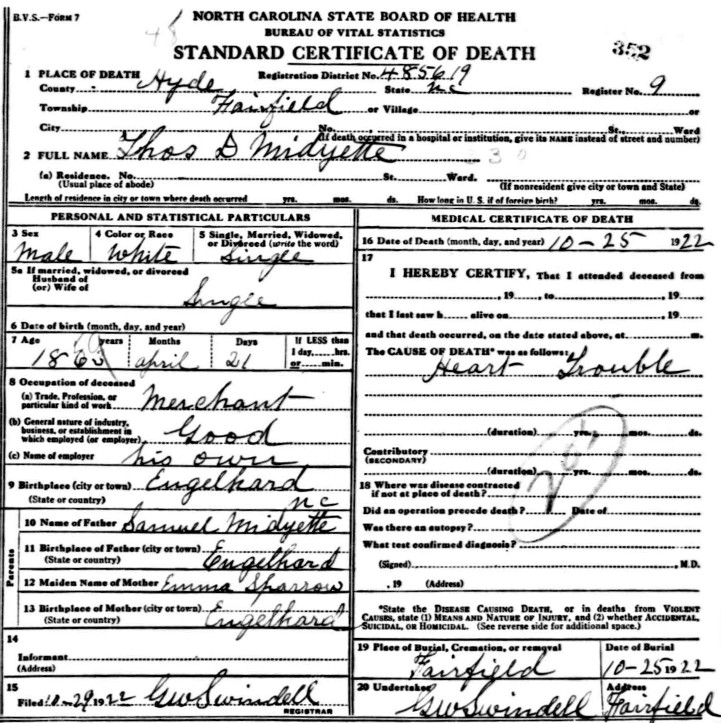 B.V.S.—FORM 7
NORTH CAROLINA STATE BOARD OF HEALTH
BUREAU OF VITAL STATISTICS
STANDARD CERTIFICATE OF DEATH
352
1 PLACE OF DEATH
Registration District No. 4856 19
County Hyde State NC Register No. 9
Township Fairfield or Village or
City No. St., Ward
(If death occurred in a hospital or institution, give its NAME instead of street and number)
2 FULL NAME Thos D Midyette
(a) Residence. No. St. Ward.
(Usual place of abode) (If nonresident give city or town and State)
Length of residence in city or town where death occurred yrs. mos. ds. How long in U. S. if of foreign birth? yrs. mos. ds.
PERSONAL AND STATISTICAL PARTICULARS
3 Sex 4 Color or Race 5 Single, Married, Widowed,
or Divorced (write the word)
Male White Single
5a If married, widowed, or divorced
Husband of
(or) Wife of
Single
6 Date of birth (month, day, and year)
7 Age years Months Days If LESS than
1 day, hrs.
1863 april 21 or min.
8 Occupation of deceased
(a) Trade, Profession, or
particular kind of work Merchant
(b) General nature of industry,
business, or establishment in
which employed (or employer) Good
(c) Name of employer his own
9 Birthplace (city or town) Engelhard
(State or country) NC
Parents
10 Name of Father Samuel Midyette
11 Birthplace of Father (city or town)
(State or country) Engelhard
12 Maiden Name of Mother Emma Sparrow
13 Birthplace of Mother (city or town)
(State or country) Engelhard
14
Informant
(Address)
15
Filed 10-29 1922 GW Swindell
REGISTRAR
MEDICAL CERTIFICATE OF DEATH
16 Date of Death (month, day, and year) 10-25 1922
17
I HEREBY CERTIFY, That I attended deceased from
, 19 , to , 19
that I last saw h alive on , 19
and that death occurred, on the date stated above, at m.
The CAUSE OF DEATH* was as follows:
Heart Trouble
(duration) yrs. mos. ds.
Contributory
(SECONDARY)
(duration) yrs. mos. ds.
18 Where was disease contracted
if not at place of death?
Did an operation precede death? Date of
Was there an autopsy?
What test confirmed diagnosis?
(Signed) , M.D.
, 19 (Address)
*State the DISEASE CAUSING DEATH, or in deaths from VIOLENT
CAUSES, state (1) MEANS AND NATURE OF INJURY, and (2) whether ACCIDENTAL,
SUICIDAL, OR HOMICIDAL. (See reverse side for additional space.)
19 Place of Burial, Cremation, or removal Date of Burial
Fairfield 10-25 1922
20 Undertaker Address
GW Swindell Fairfield